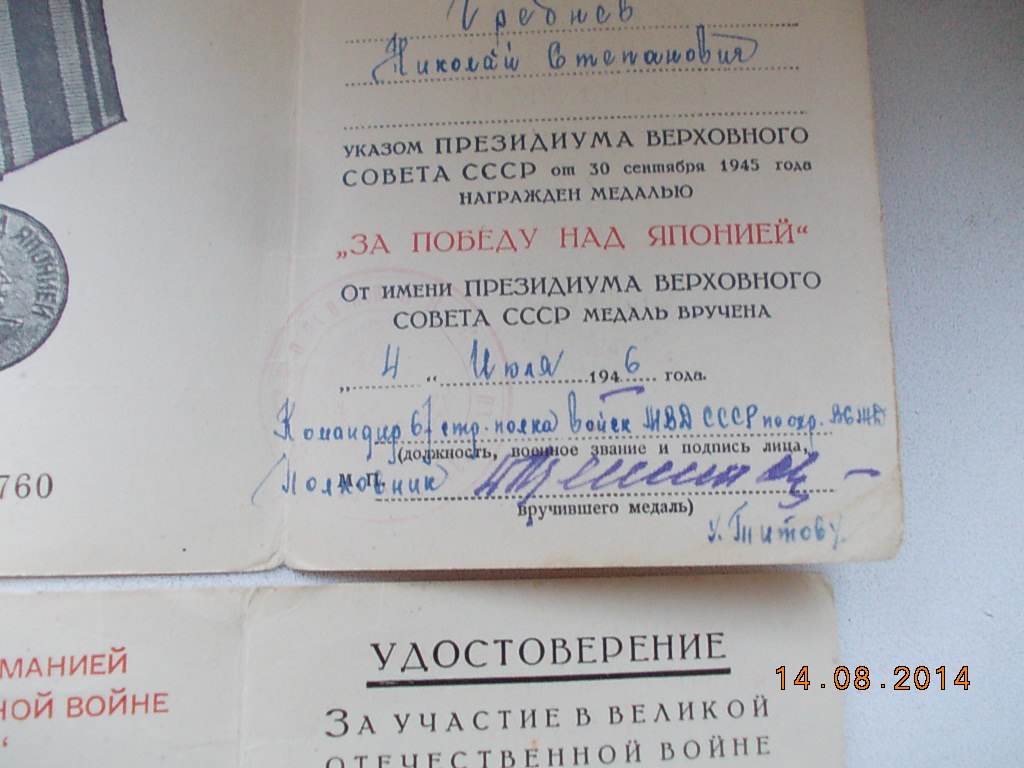 Гребнев
Николай Степанович
УКАЗОМ ПРЕЗИДИУМА ВЕРХОВНОГО
СОВЕТА СССР от 30 сентября 1945 года
НАГРАЖДЕН МЕДАЛЬЮ
„ЗА ПОБЕДУ НАД ЯПОНИЕЙ“
ОТ ИМЕНИ ПРЕЗИДИУМА ВЕРХОВНОГО
СОВЕТА СССР МЕДАЛЬ ВРУЧЕНА
„ 4 “ Июля 1946 года.
Командир 67 стр. полка войск МВД СССР по охр.
(должность, военное звание и подпись лица,
М. П. Полковник
вручившего медаль)
ЯПОНИЕЙ
760
МАНИЕЙ
НОЙ ВОЙНЕ
“
УДОСТОВЕРЕНИЕ
ЗА УЧАСТИЕ В ВЕЛИКОЙ
ОТЕЧЕСТВЕННОЙ ВОЙНЕ
14.08.2014